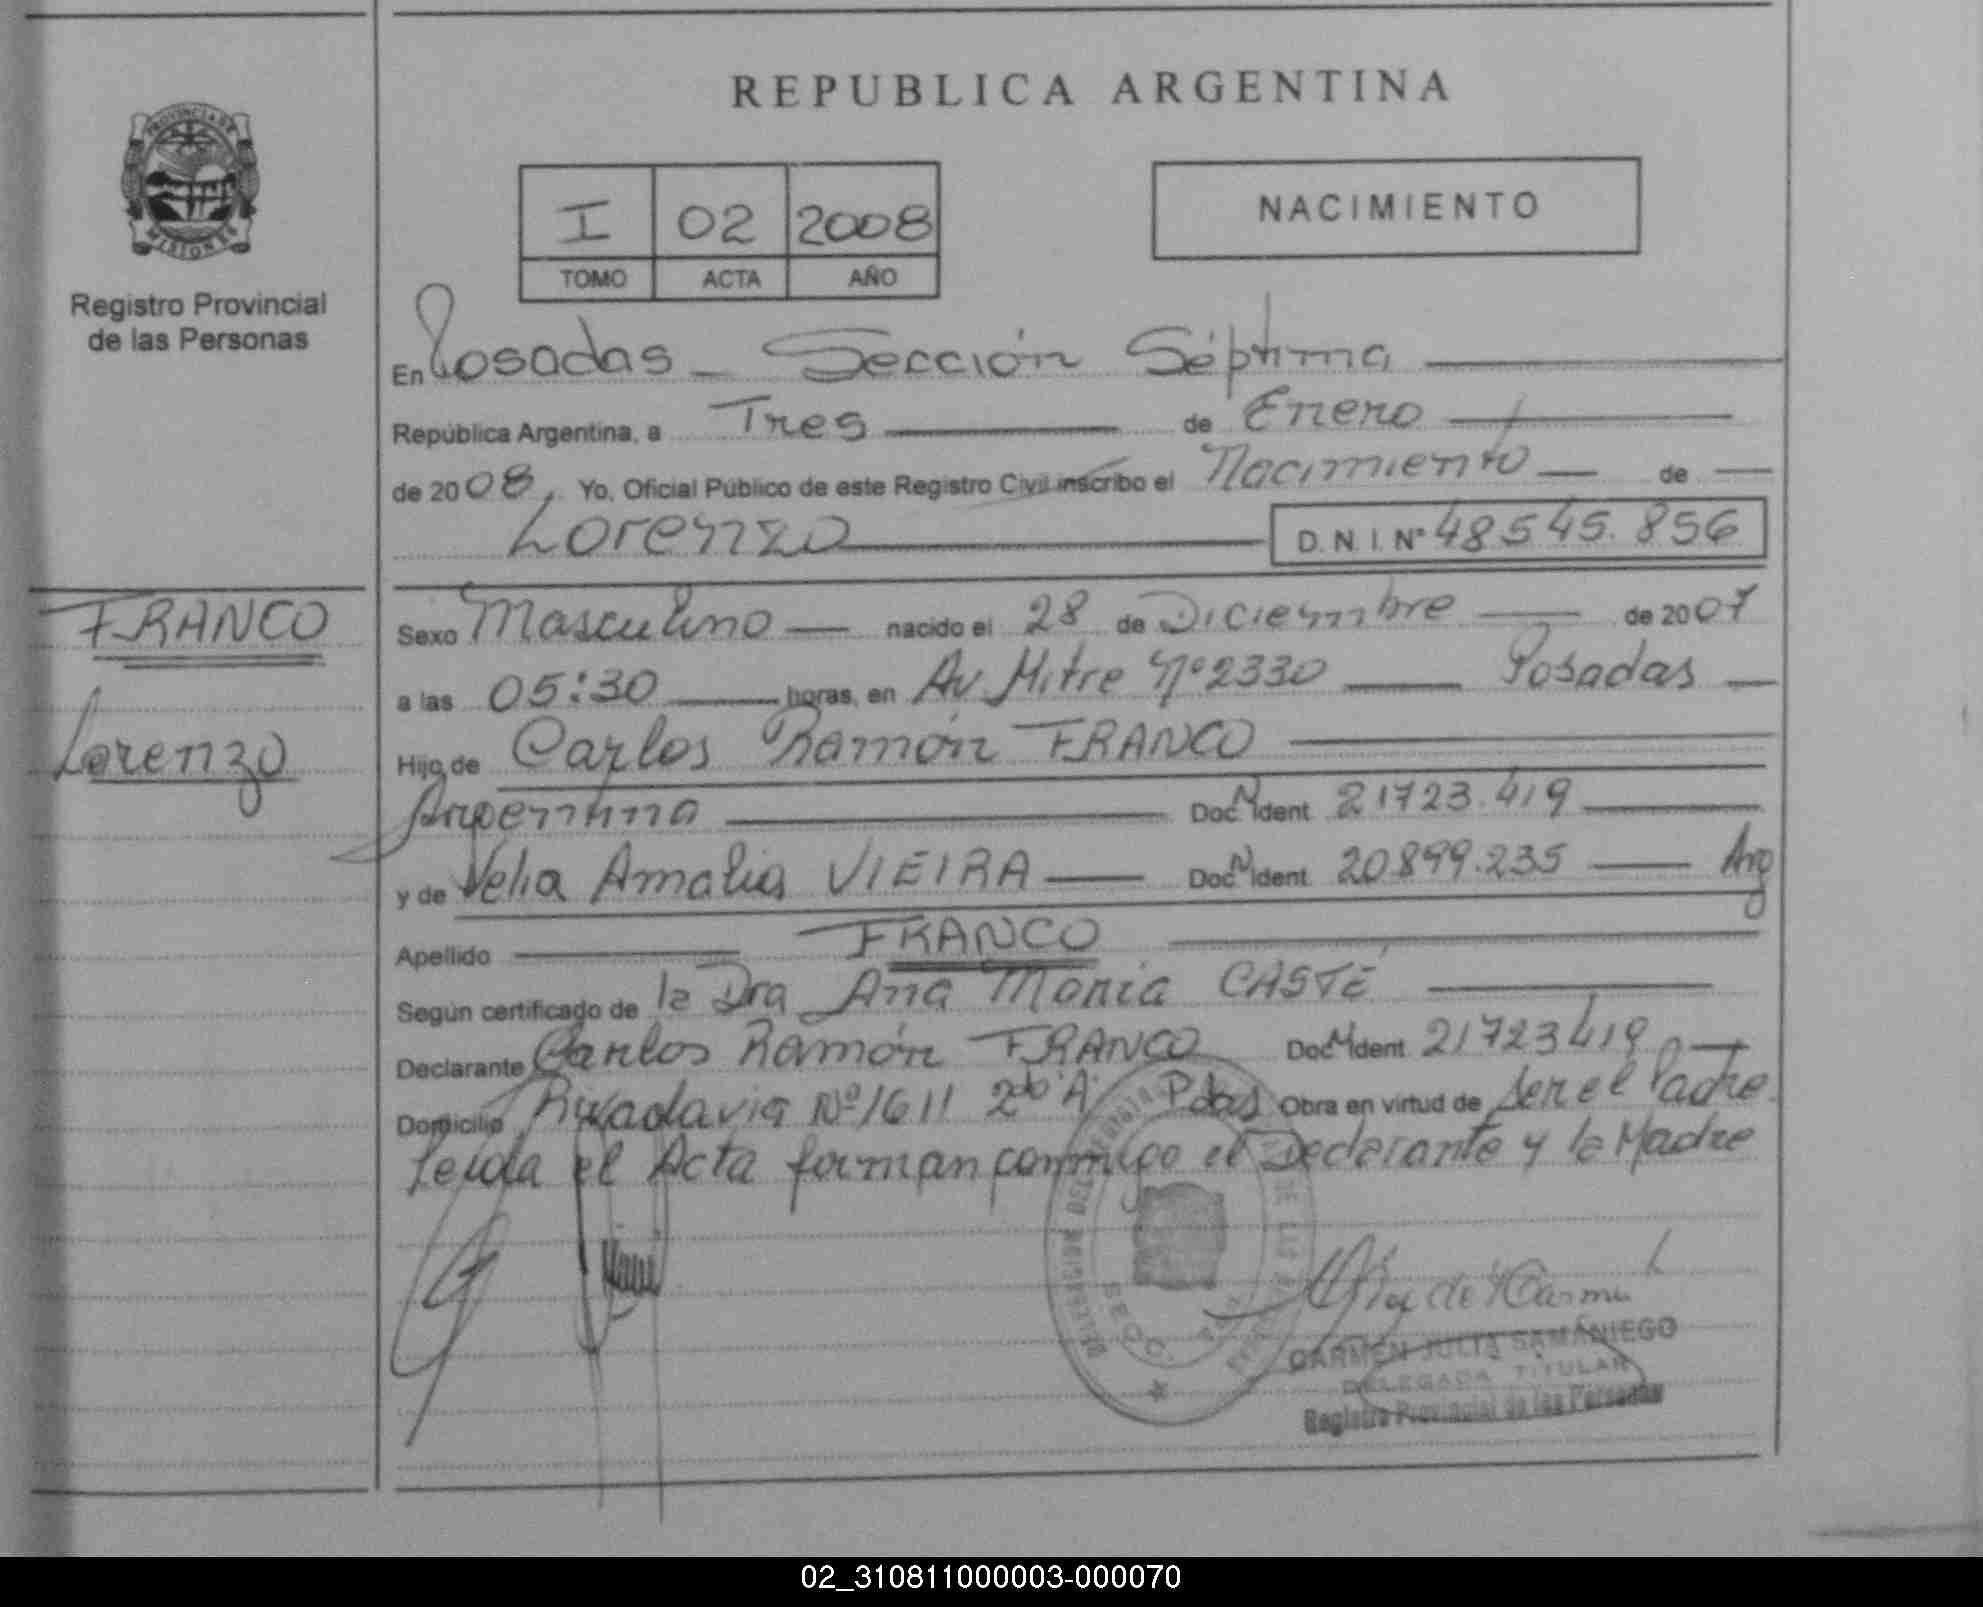 REPUBLICA ARGENTINA
PROVINCIA DE
MISIONES
Registro Provincial
de las Personas
I 02 2008
TOMO ACTA AÑO
NACIMIENTO
En Posadas - Sección Séptima
República Argentina, a Tres de Enero
de 2008, Yo, Oficial Público de este Registro Civil inscribo el Nacimiento de
Lorenzo D.N.I. Nº 48545.856
FRANCO
Lorenzo
Sexo Masculino nacido el 28 de Diciembre de 2007
a las 05:30 horas, en Av. Mitre Nº 2330 Posadas
Hijo de Carlos Ramón FRANCO
Argentina Doc N Ident 21723.419
y de Velia Amalia VIEIRA Doc N Ident 20.899.235 Arg
Apellido FRANCO
Según certificado de la Dra Ana María CASTÉ
Declarante Carlos Ramón FRANCO Doc N Ident 21723419
Domicilio Rivadavia Nº 1611 2do A Pdas Obra en virtud de Ser el Padre
Leída el Acta forman conmigo el Declarante y la Madre
SECC.
CARMEN JULIA SAMANIEGO
DELEGADA TITULAR
Registro Provincial de las Personas
02_310811000003-000070